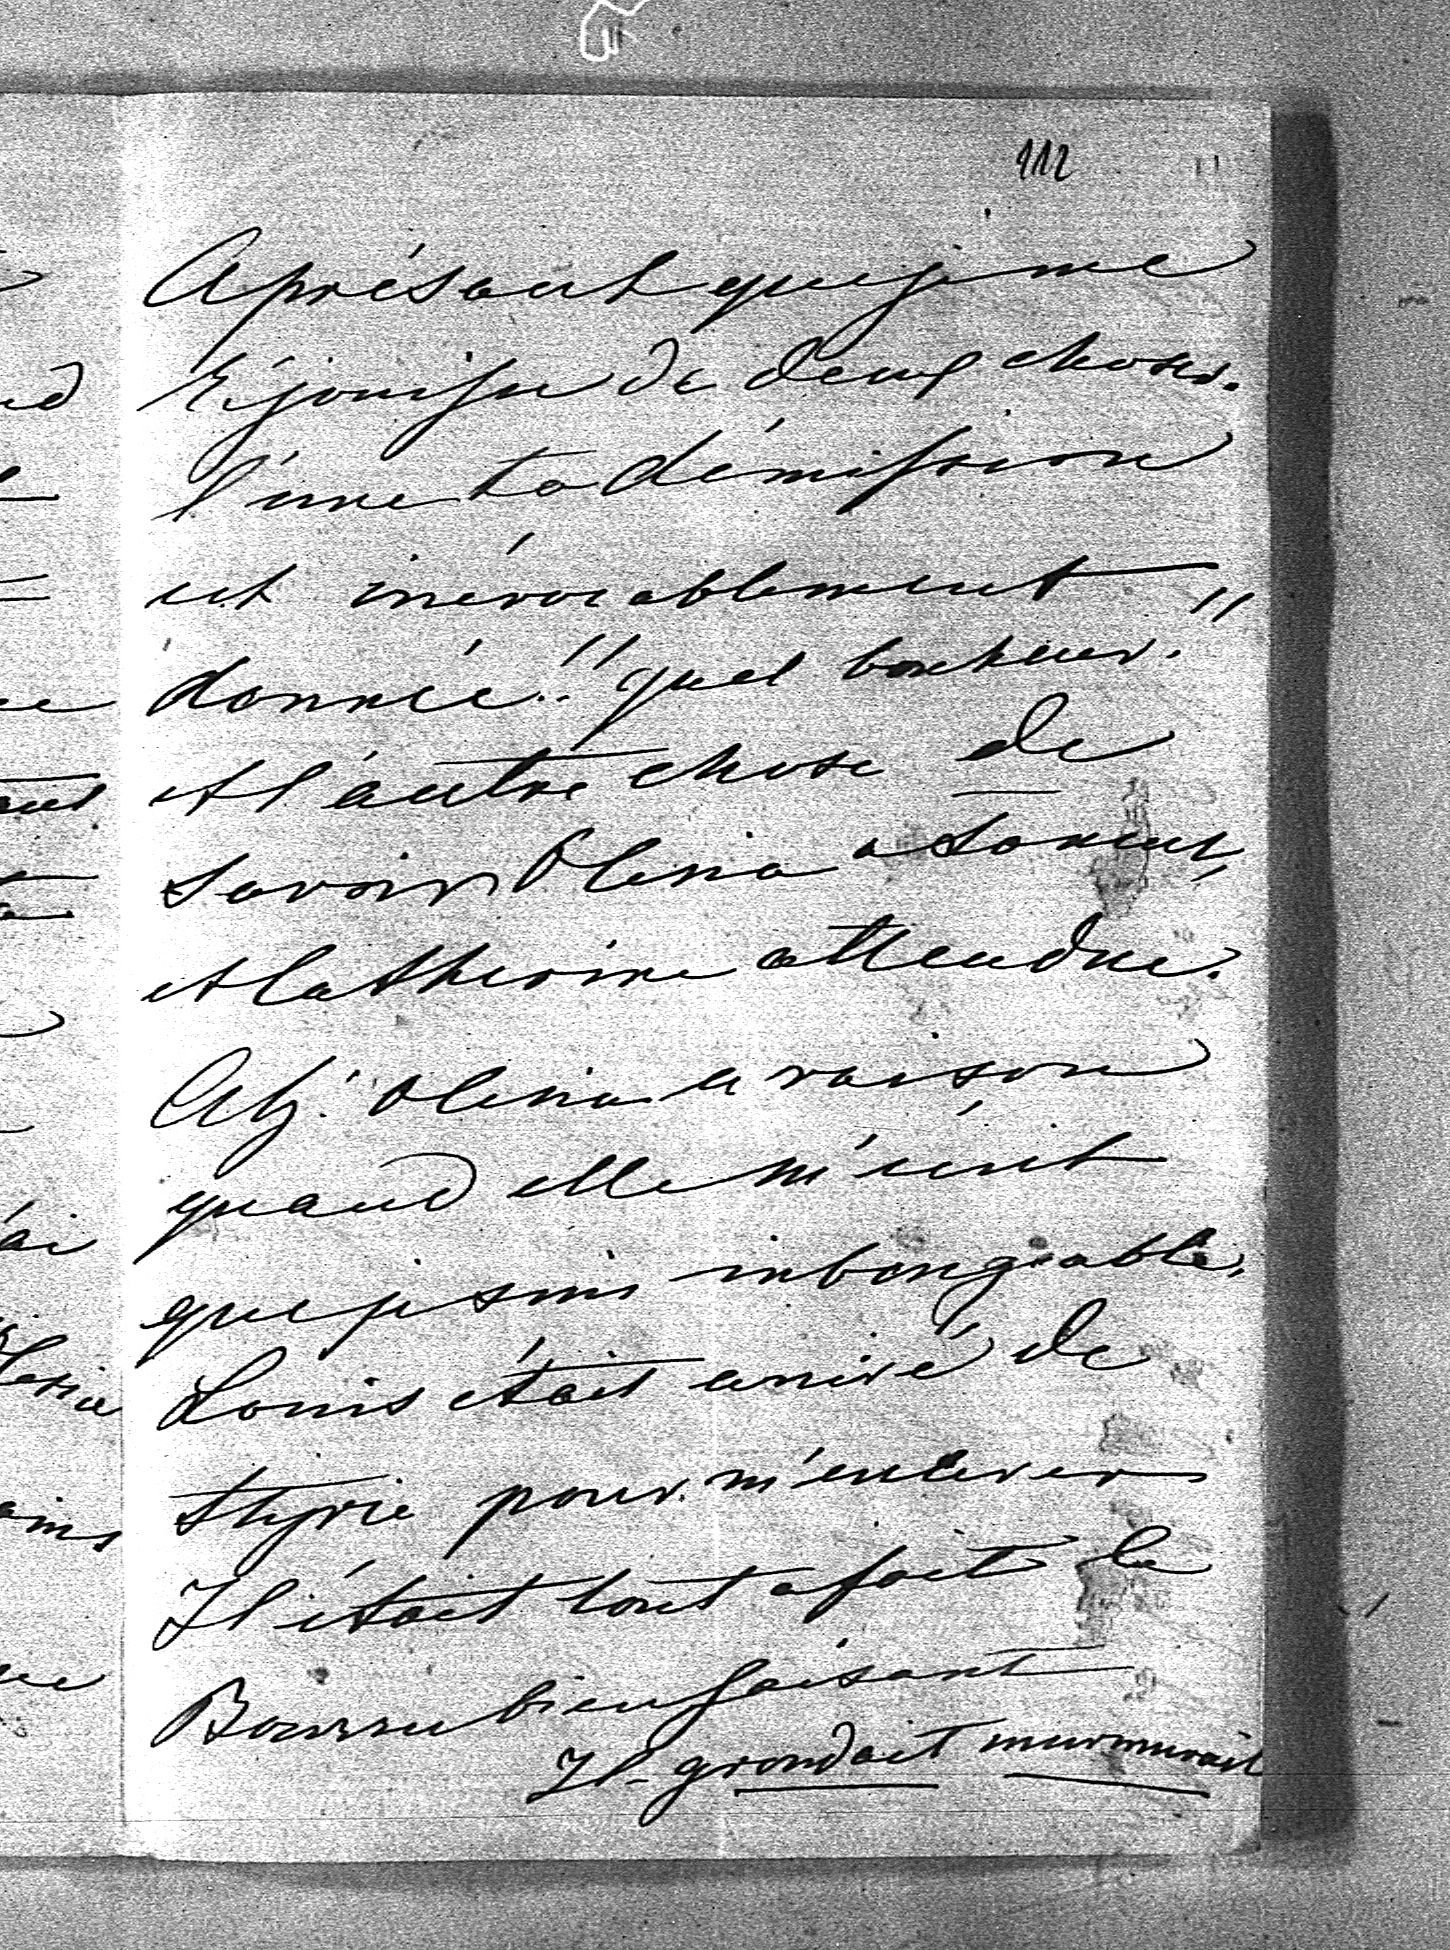 112
A présent que je me
réjouisse de deux choses.
l'une ta démission
est inérocablement
donnée!! quel bonheur!!
et l'autre chose de
savoir Olena a Sorent,
et Catherine attendue.
Ah! Olena a raison
quand elle m'écrit
que je suis inbougeable.
Louis était arrivé de
Styrie pour m'enlever
Il était tout a fait le
Bourru bienfaisant
Il grondait murmurait